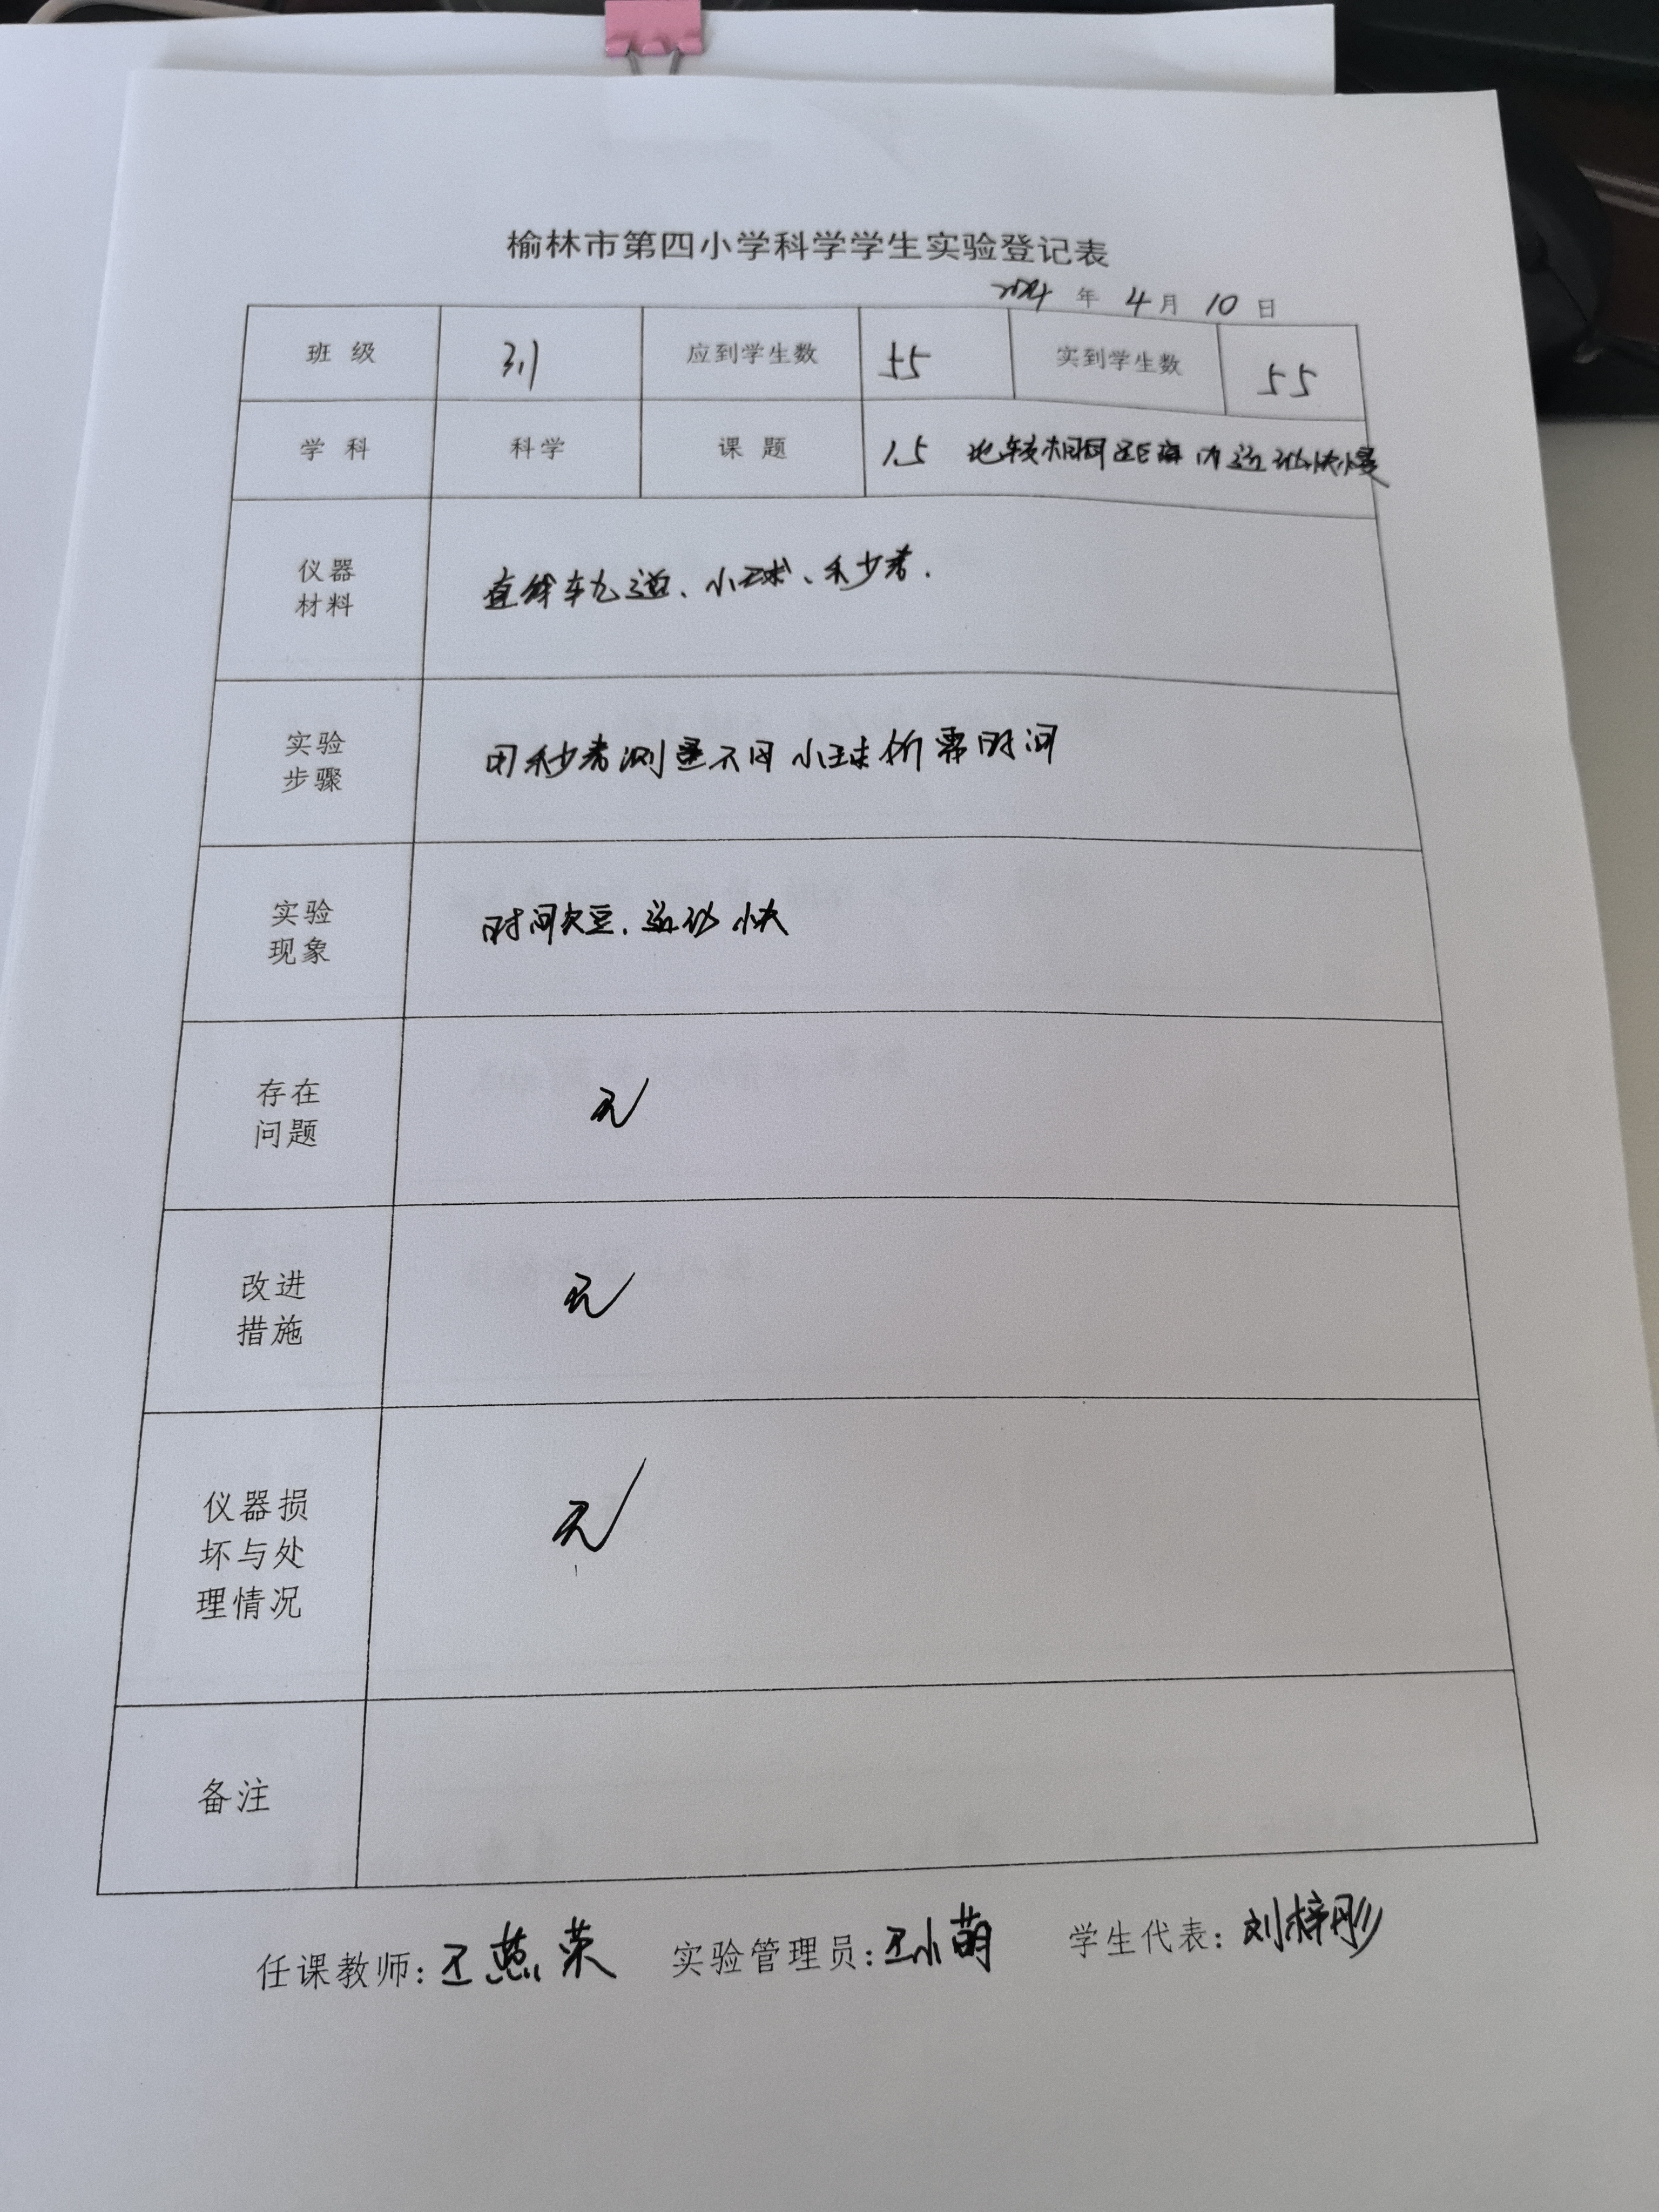 榆林市第四小学科学学生实验登记表
2024年4月10日
班级 3.1 应到学生数 55 实到学生数 55
学科 科学 课题 1.5 比较相同距离内运动快慢
仪器
材料
直线轨道、小球、秒表.
实验
步骤
用秒表测量不同小球所需时间
实验
现象
时间短,运动快
存在
问题
无
改进
措施
无
仪器损
坏与处
理情况
无
备注
任课教师:王燕荣 实验管理员:王小萌 学生代表:刘梓彤